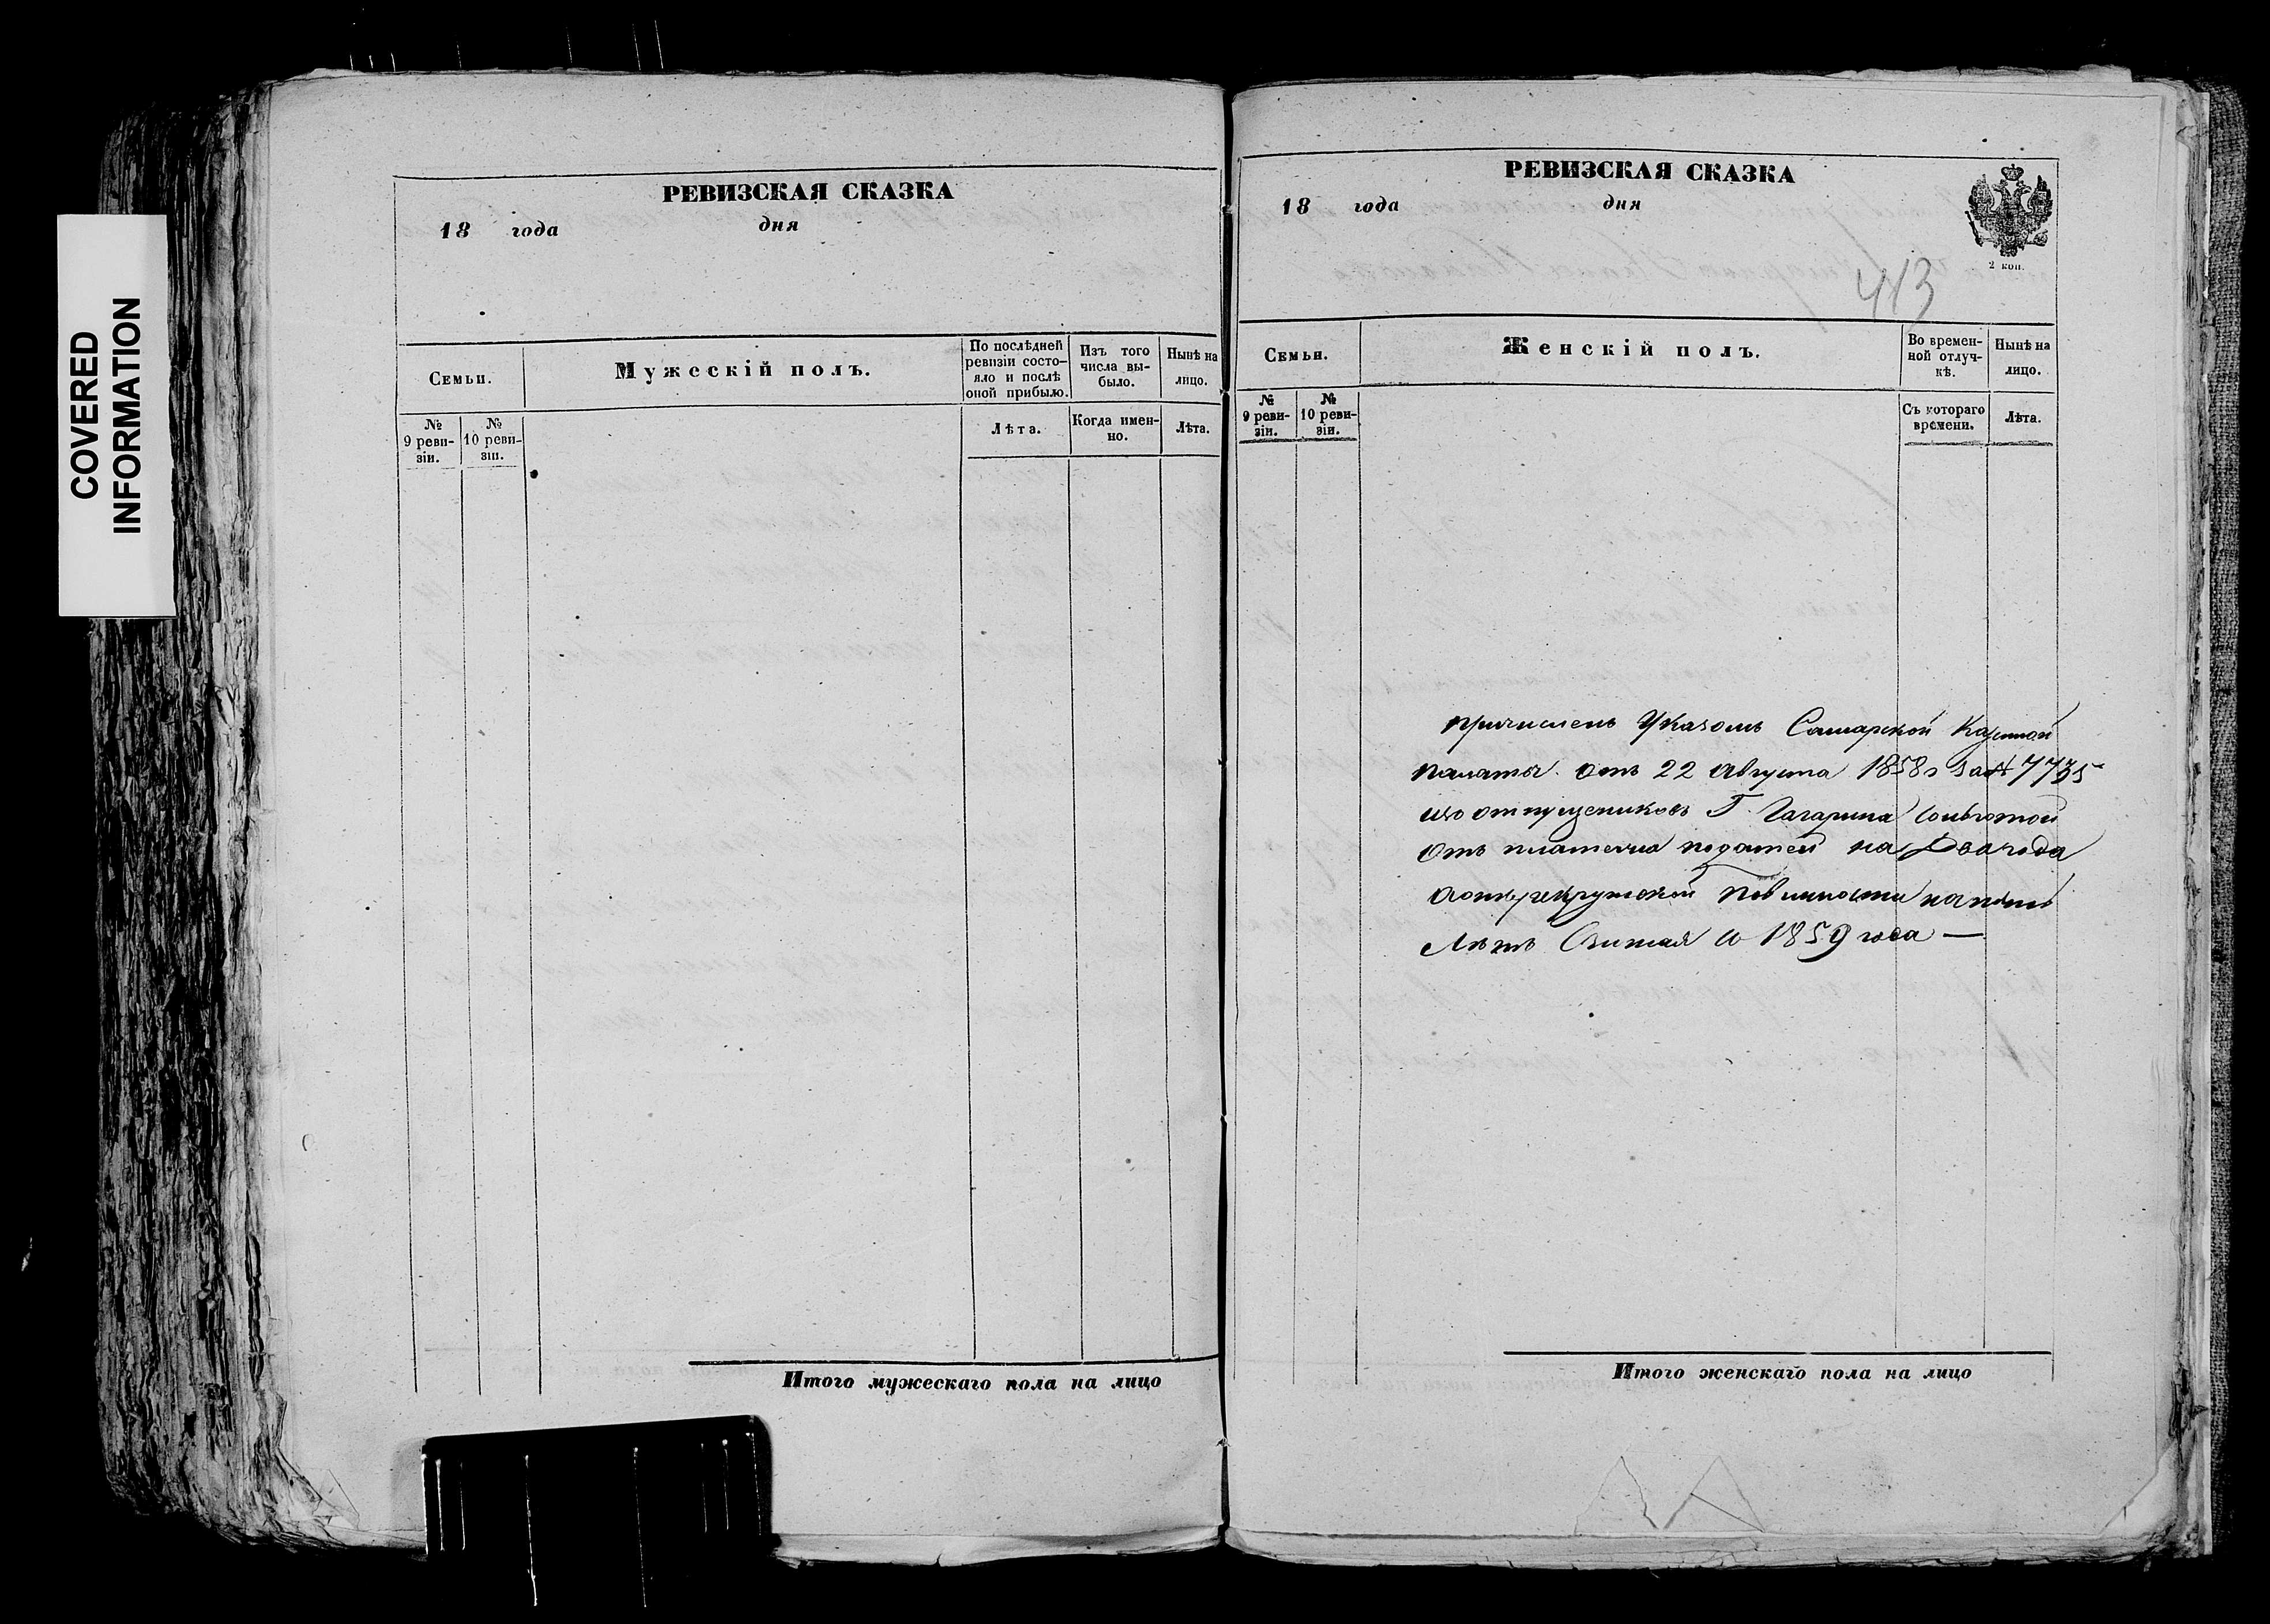 COVERED
INFORMATION
РЕВИЗСКАЯ СКАЗКА
18 года дня
Семьи.
Мужескій полъ.
По послѣдней
ревизіи состо-
яло и послѣ
оной прибыло.
Изъ того
числа вы-
было.
Нынѣ на
лицо.
№
9 реви-
зіи.
№
10 реви-
зіи.
Лѣта.
Когда имен-
но.
Лѣта.
Итого мужескаго пола на лицо
РЕВИЗСКАЯ СКАЗКА
18 года дня
2 коп.
413
Семьи.
Женскій полъ.
Во времен-
ной отлуч-
кѣ.
Нынѣ на
лицо.
№
9 реви-
зіи.
№
10 реви-
зіи.
Съ котораго
времени.
Лѣта.
причисленъ Указомъ Самарской Казенной
палаты. отъ 22 Августа 1858 г за № 7735
изо отпущениковъ Г. Гагарина сольготой
отъ платежа податей на Два года
аотъ рекрутской повинности напять
Лѣтъ Считая со 1859 года —
Итого женскаго пола на лицо